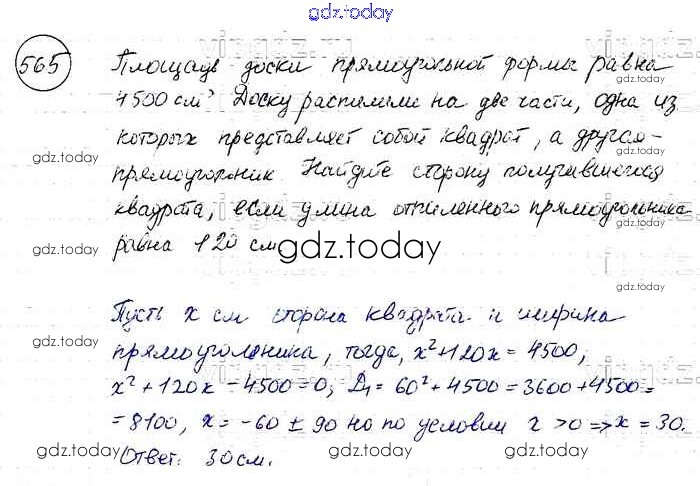 gdz.today
565 Площадь доски прямоугольной формы равна
4500 см² Доску распилили на две части, одна из
которых представляет собой квадрат, а другая-
прямоугольник Найдите сторону получившегося
квадрата, если длина отпиленного прямоугольника
равна 120 см
gdz.today
Пусть x см сторона квадрата и ширина
прямоуголеника, тогда, x²+120x = 4500,
x² + 120x - 4500 = 0; D₁ = 60² + 4500 = 3600 + 4500 =
= 8100, x = -60 ± 90 но по условии x > 0 => x = 30.
Ответ: 30 см.